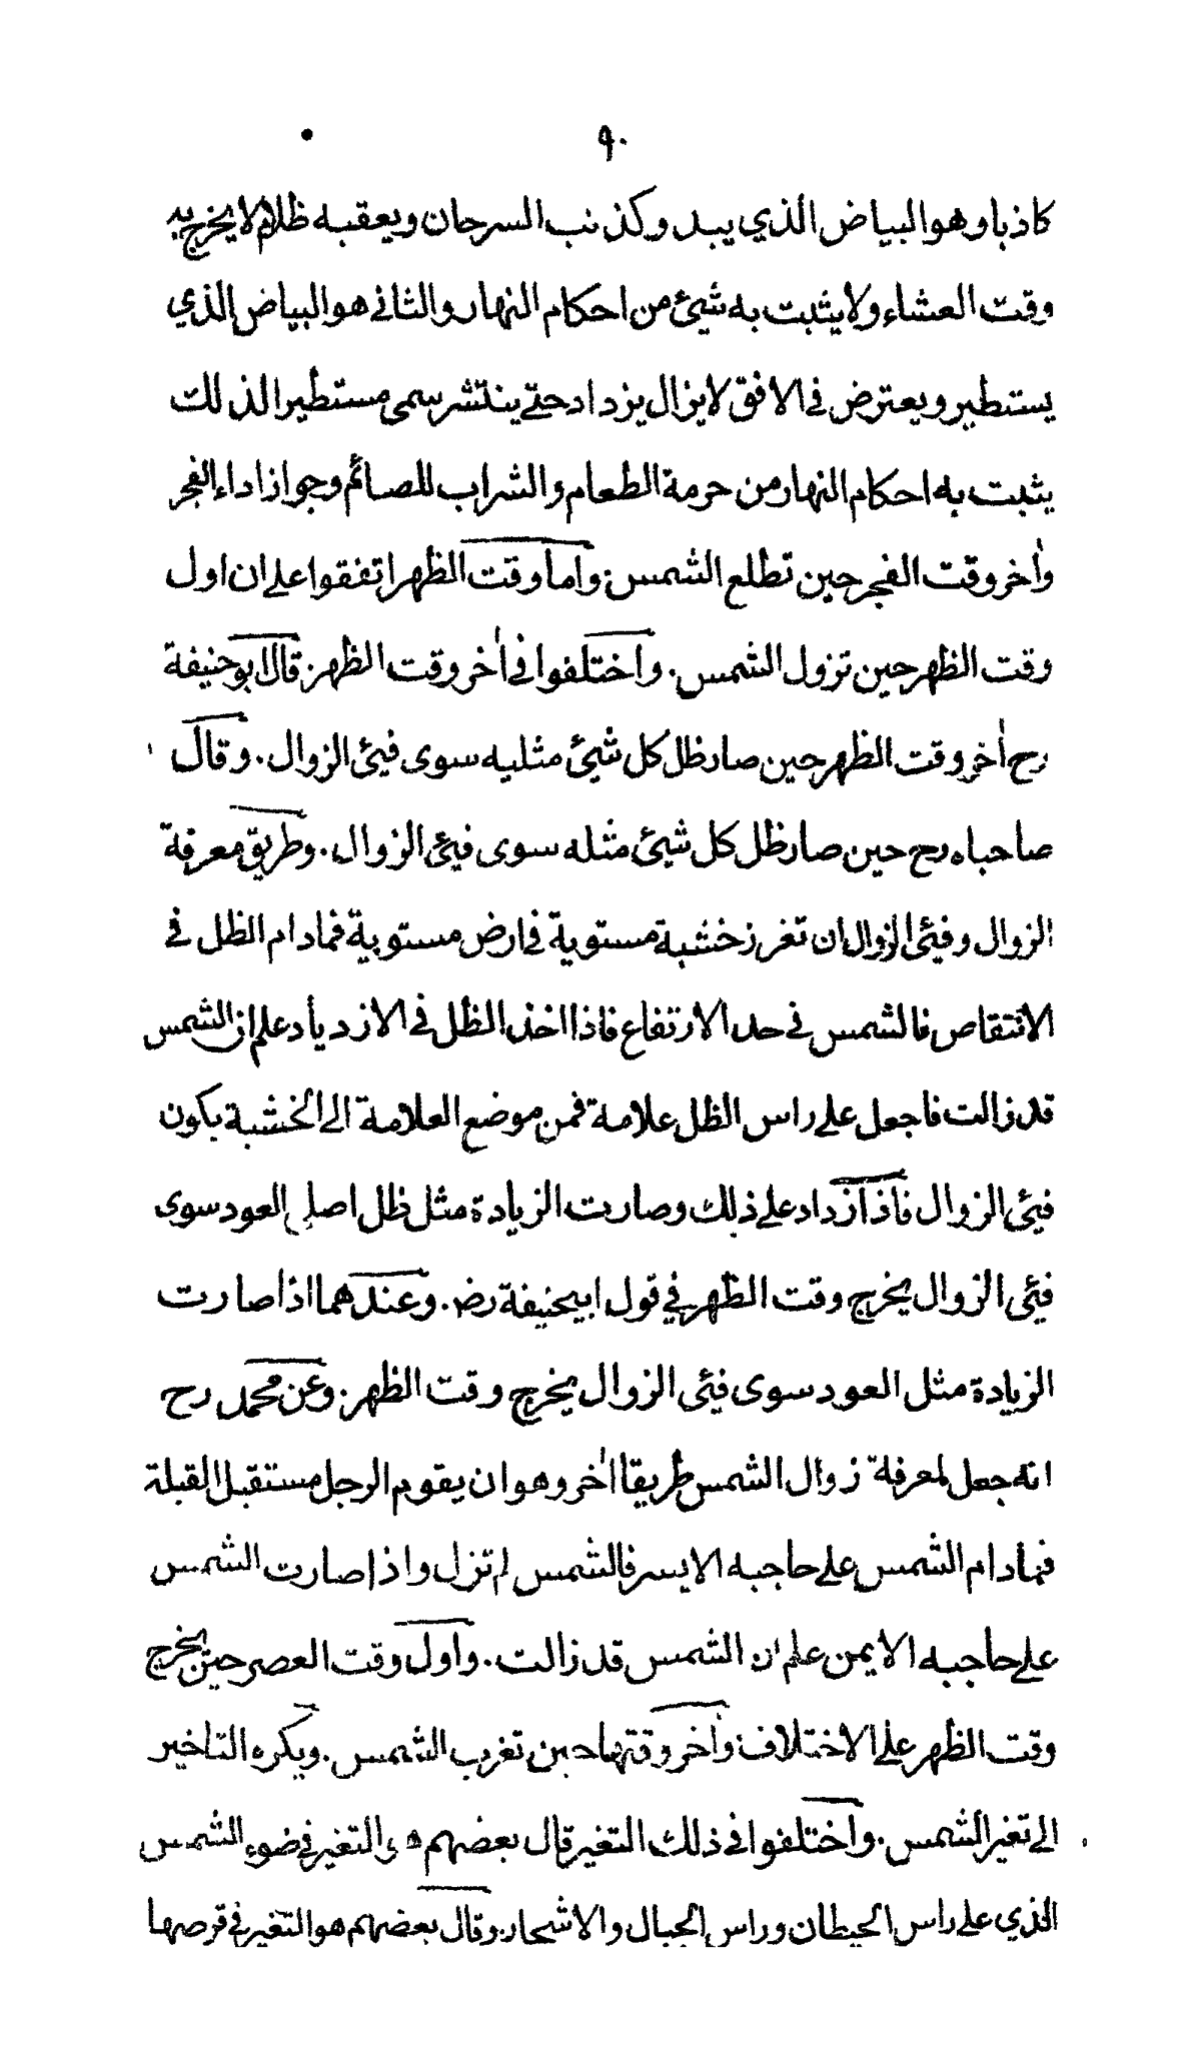 ٩٠
كاذبا وهو البياض الذي يبدو كذنب السرحان ويعقبه ظلام لا يخرج به
وقت العشاء ولا يثبت به شيئ من احكام النهار والثاني هو البياض الذي
يستطير ويعترض في الافق لا يزال يزداد حتى ينتشر سمى مستطيرا لذلك
يثبت به احكام النهار من حرمة الطعام والشراب للصائم وجواز اداء الفجر
وأخر وقت الفجر حين تطلع الشمس. واما وقت الظهر اتفقوا على ان اول
وقت الظهر حين تزول الشمس. واختلفوا في أخر وقت الظهر. قال ابو حنيفة
رح أخر وقت الظهر حين صار ظل كل شيئ مثليه سوى فيئ الزوال. وقال
صاحباه رح حين صار ظل كل شيئ مثله سوى فيئ الزوال. وطريق معرفة
الزوال وفيئ الزوال ان تغرز خشبة مستوية في ارض مستوية فمادام الظل في
الانتقاص فالشمس في حد الارتفاع فاذا اخذ الظل في الازدياد علم ان الشمس
قد زالت فاجعل على راس الظل علامة فمن موضع العلامة الى الخشبة يكون
فيئ الزوال فاذا ازداد على ذلك وصارت الزيادة مثل ظل اصل العود سوى
فيئ الزوال يخرج وقت الظهر في قول ابيحنيفة رضـ. وعندهما اذا صارت
الزيادة مثل العود سوى فيئ الزوال يخرج وقت الظهر. وعن محمد رح
انه جعل لمعرفة زوال الشمس طريقا أخر وهو ان يقوم الرجل مستقبل القبلة
فمادام الشمس على حاجبه الايسر فالشمس لم تزل واذا صارت الشمس
على حاجبه الايمن علم ان الشمس قد زالت. واول وقت العصر حين يخرج
وقت الظهر على الاختلاف. وأخر وقتها حين تغرب الشمس. ويكره التاخير
الى تغير الشمس. واختلفوا في ذلك التغير قال بعضهم هو التغير في ضوء الشمس
الذي على راس الحيطان وراس الجبال والاشجار. وقال بعضهم هو التغير في قرصها